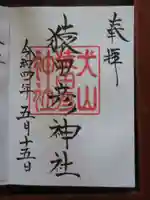 奉拝
犬山
猿田彦神社
神社
令和四年五月十五日